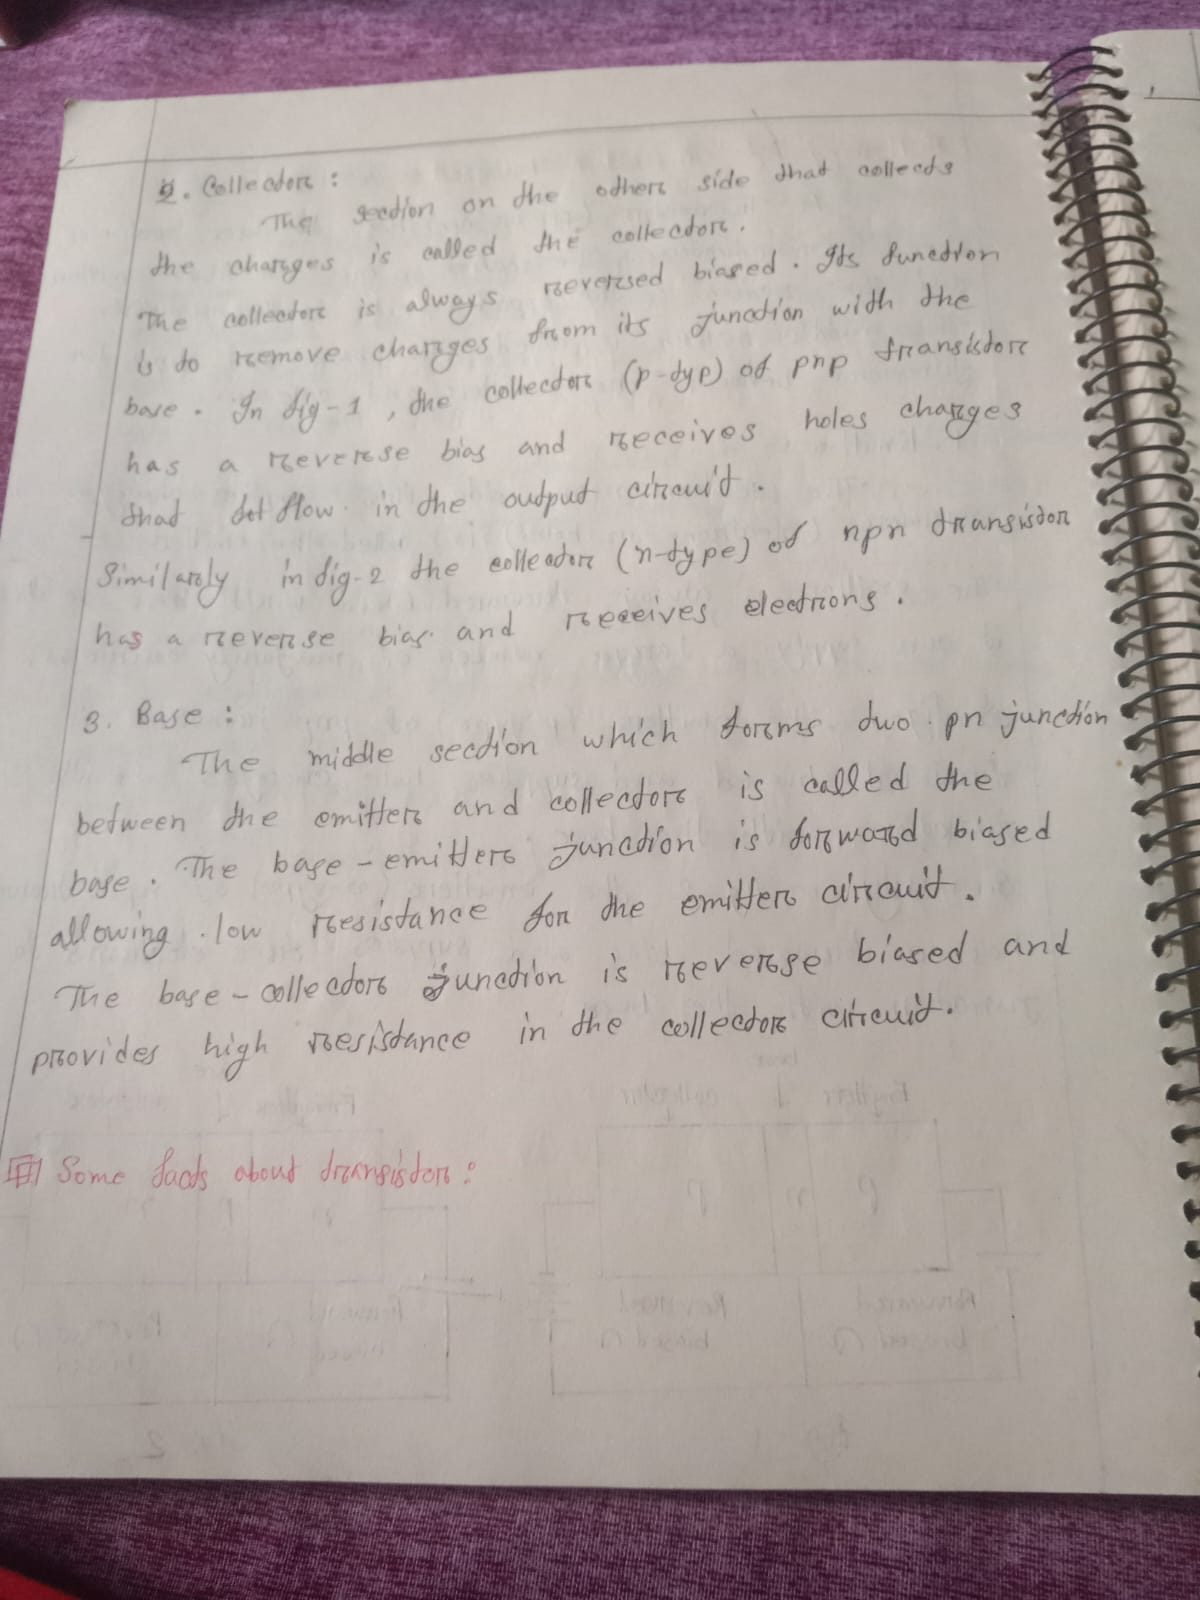 2. Collector :
The section on the other side that collects
the charges is called the collector.
The collector is always reversed biased. Its function
is to remove charges from its junction with the
base. In fig-1, the collector (p-typ) of pnp transistor
has a reverse bias and receives holes charges
that flow in the output circuit.
Similarly in fig-2 the collector (n-type) of npn transistor
has a reverse bias and receives electrons.
3. Base :
The middle section which forms two pn junction
between the emitter and collector is called the
base. The base-emitter junction is forward biased
allowing low resistance for the emitter circuit.
The base-collector junction is reverse biased and
provides high resistance in the collector circuit.
Some facts about transistor :